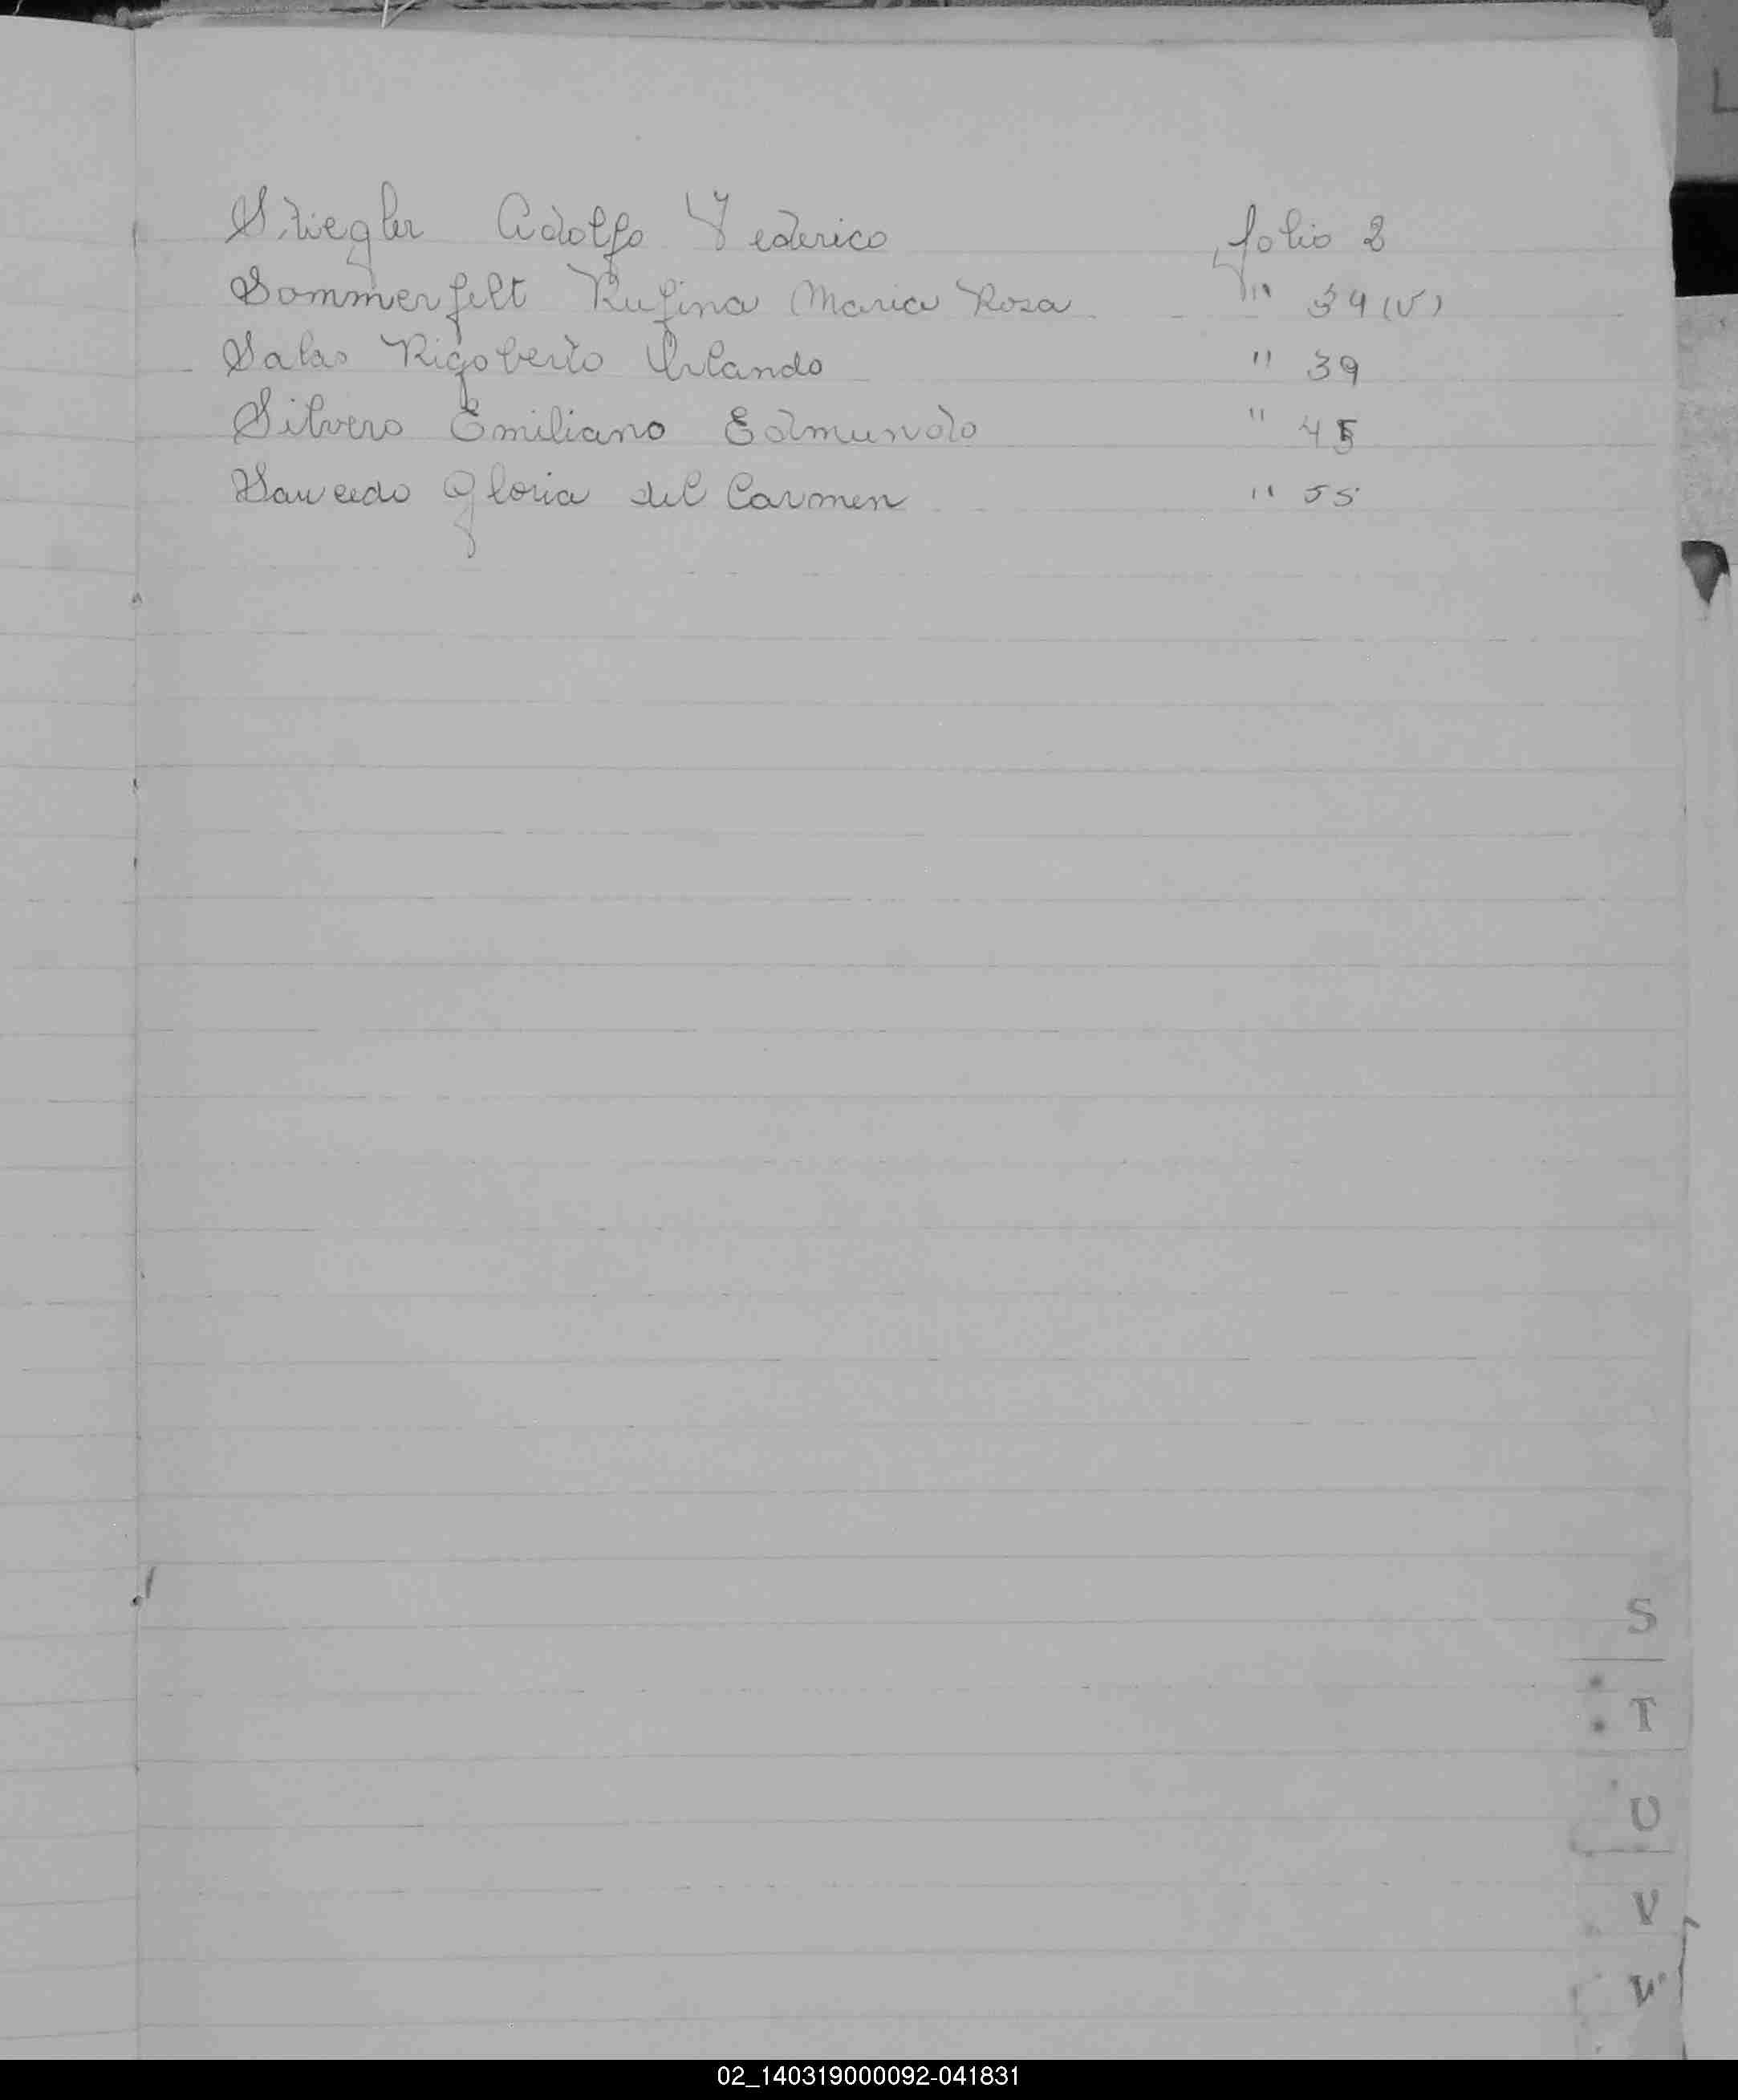 Stiegler Adolfo Federico folio 2
Sommerfelt Rufina Maria Rosa " 34 (V)
Salas Rigoberto Orlando " 39
Silvero Emiliano Edmundo " 45
Saucedo Gloria del Carmen " 55
S
T
U
V
W
02_140319000092-041831